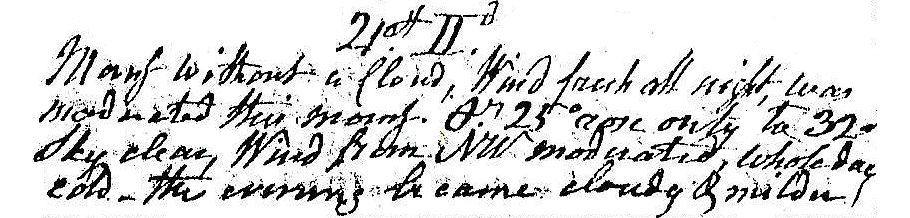 21st II.d
Morng without a Cloud, Wind fresh all night, was
moderated this morng. Tr. 25° rose only to 32°
Sky clear, Wind from NW moderated, whole day
cold - the evening became cloudy & milder